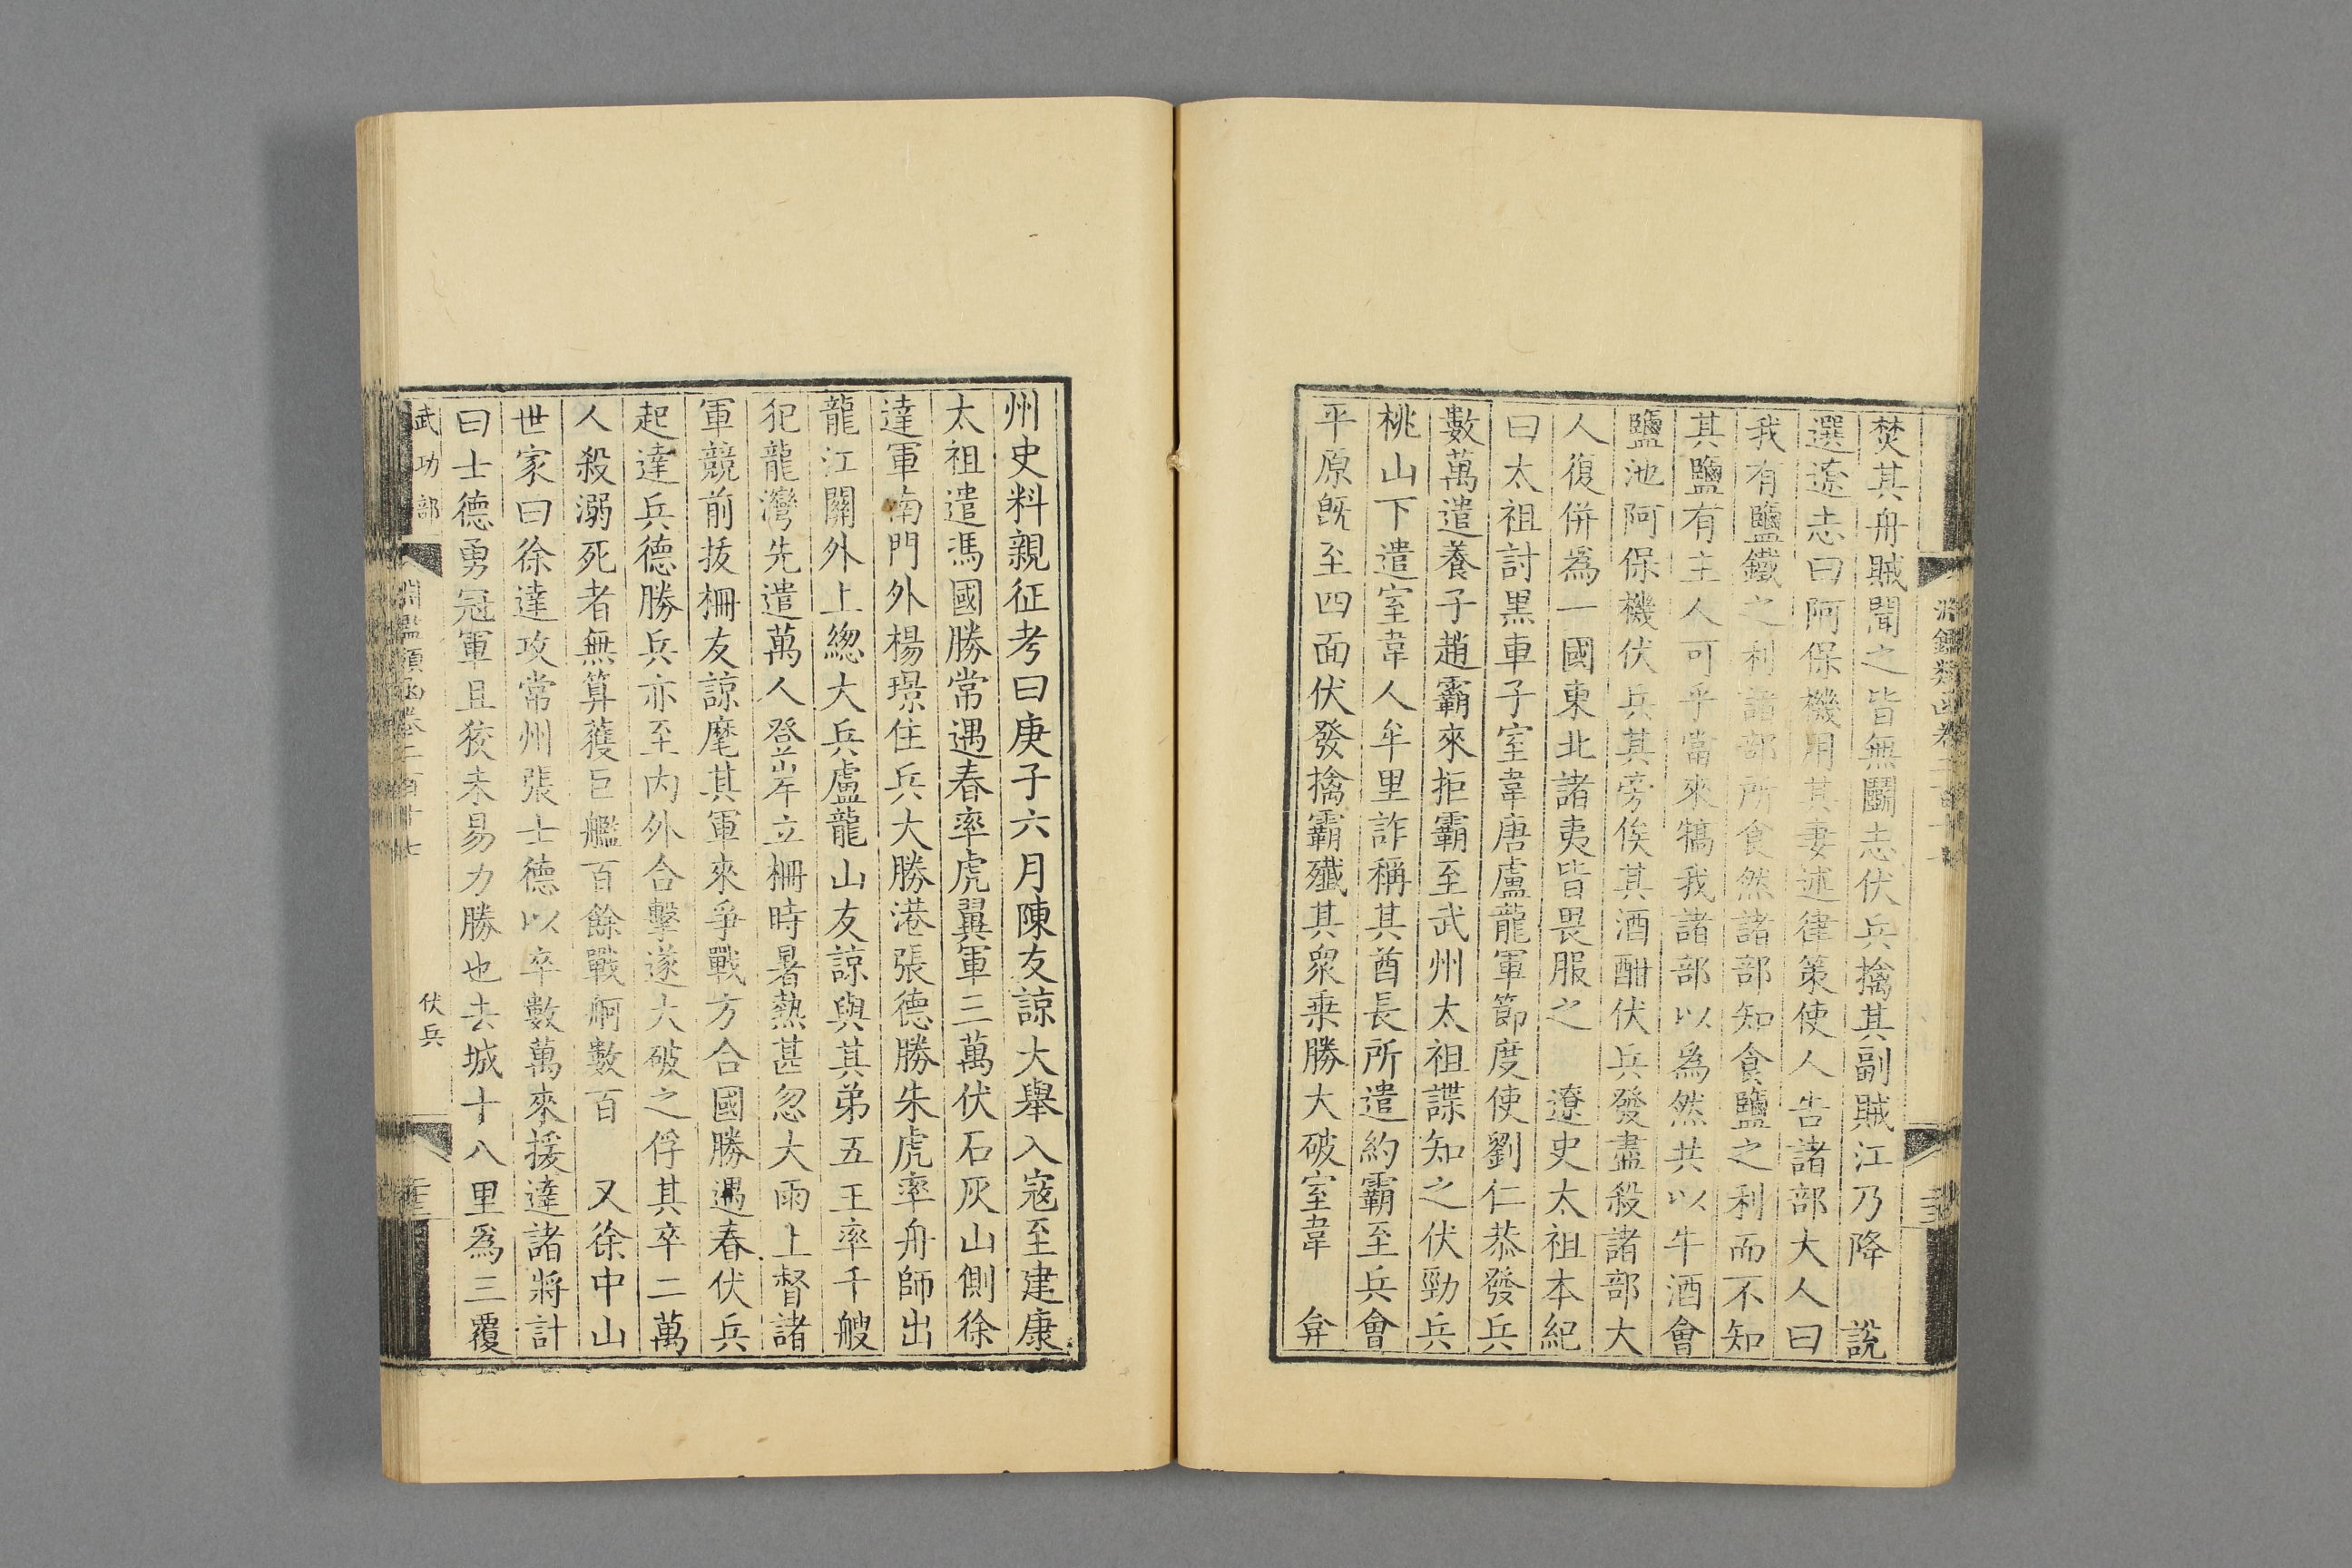 焚其舟賊聞之皆無鬭志伏兵擒其副賊江乃降　說
選遼志曰阿保機用其妻述律策使人告諸部大人曰
我有鹽鐵之利諸部所食然諸部知食鹽之利而不知
其鹽有主人可乎當來犒我諸部以爲然共以牛酒會
鹽池阿保機伏兵其旁俟其酒酣伏兵發盡殺諸部大
人復併爲一國東北諸夷皆畏服之　遼史太祖本紀
曰太祖討黑車子室韋唐盧龍軍節度使劉仁恭發兵
數萬遣養子趙霸來拒霸至武州太祖諜知之伏勁兵
桃山下遣室韋人牟里詐稱其酋長所遣約霸至兵會
平原旣至四面伏發擒霸殲其衆乗勝大破室韋　弇
州史料親征考曰庚子六月陳友諒大舉入寇至建康
太祖遣馮國勝常遇春率虎翼軍三萬伏石灰山側徐
達軍南門外楊璟住兵大勝港張德勝朱虎率舟師出
龍江關外上緫大兵盧龍山友諒與其弟五王率千艘
犯龍灣先遣萬人登岸立柵時暑熱甚忽大雨上督諸
軍競前拔柵友諒麾其軍來爭戰方合國勝遇春伏兵
起達兵德勝兵亦至內外合擊遂大破之俘其卒二萬
人殺溺死者無算獲巨艦百餘戰舸數百　又徐中山
世家曰徐達攻常州張士德以卒數萬來援達諸將計
曰士德勇冠軍且狡未易力勝也去城十八里爲三覆
武功部
淵鑑類函卷二百十七
伏兵